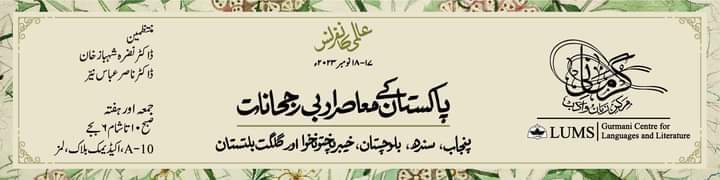 عالمی کانفرنس
۱۷-۱۸ نومبر ۲۰۲۳ء
پاکستان کے معاصر ادبی رجحانات
پنجاب، سندھ، بلوچستان، خیبر پختونخوا اور گلگت بلتستان
منتظمین
ڈاکٹر نضرہ شہباز خان
ڈاکٹر ناصر عباس نیّر
جمعہ اور ہفتہ
صبح ۱۰ تا شام ۶ بجے
A-10، اکیڈیمک بلاک، لمز
گرمانی
مرکز زبان و ادب
LUMS
Gurmani Centre for
Languages and Literature